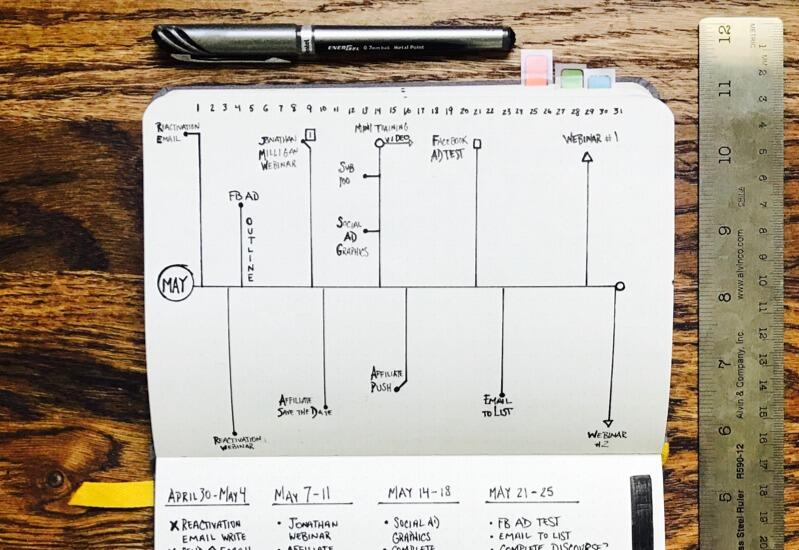 ENERGEL 0.7mm ball Metal Point
1 2 3 4 5 6 7 8 9 10 11 12 13 14 15 16 17 18 19 20 21 22 23 24 25 26 27 28 29 30 31
REACTIVATION
EMAIL
JONATHAN
MILLIGAN
WEBINAR
1
MINI TRAINING
VIDEO
FACEBOOK
AD TEST
WEBINAR #1
SUB
100
FB AD
OUTLINE
SOCIAL
AD
GRAPHICS
MAY
AFFILIATE
PUSH
AFFILIATE
SAVE THE DATE
EMAIL
TO LIST
REACTIVATION
WEBINAR
WEBINAR
#2
APRIL 30-MAY 4
MAY 7-11
MAY 14-18
MAY 21-25
X REACTIVATION
EMAIL WRITE
• JONATHAN
WEBINAR
• AFFILIATE
• SOCIAL AD
GRAPHICS
• COMPLETE
• FB AD TEST
• EMAIL TO LIST
• COMPLETE DISCOURSE?
12
11
10
9
8
7
6
5
METRIC
1 2 3 4 5 6 7 8 9 10 11 12 13 14 15 16 17 18 19 20
CHINA
www.alvinco.com
Alvin & Company, Inc.
R590-12
ss Steel Ruler